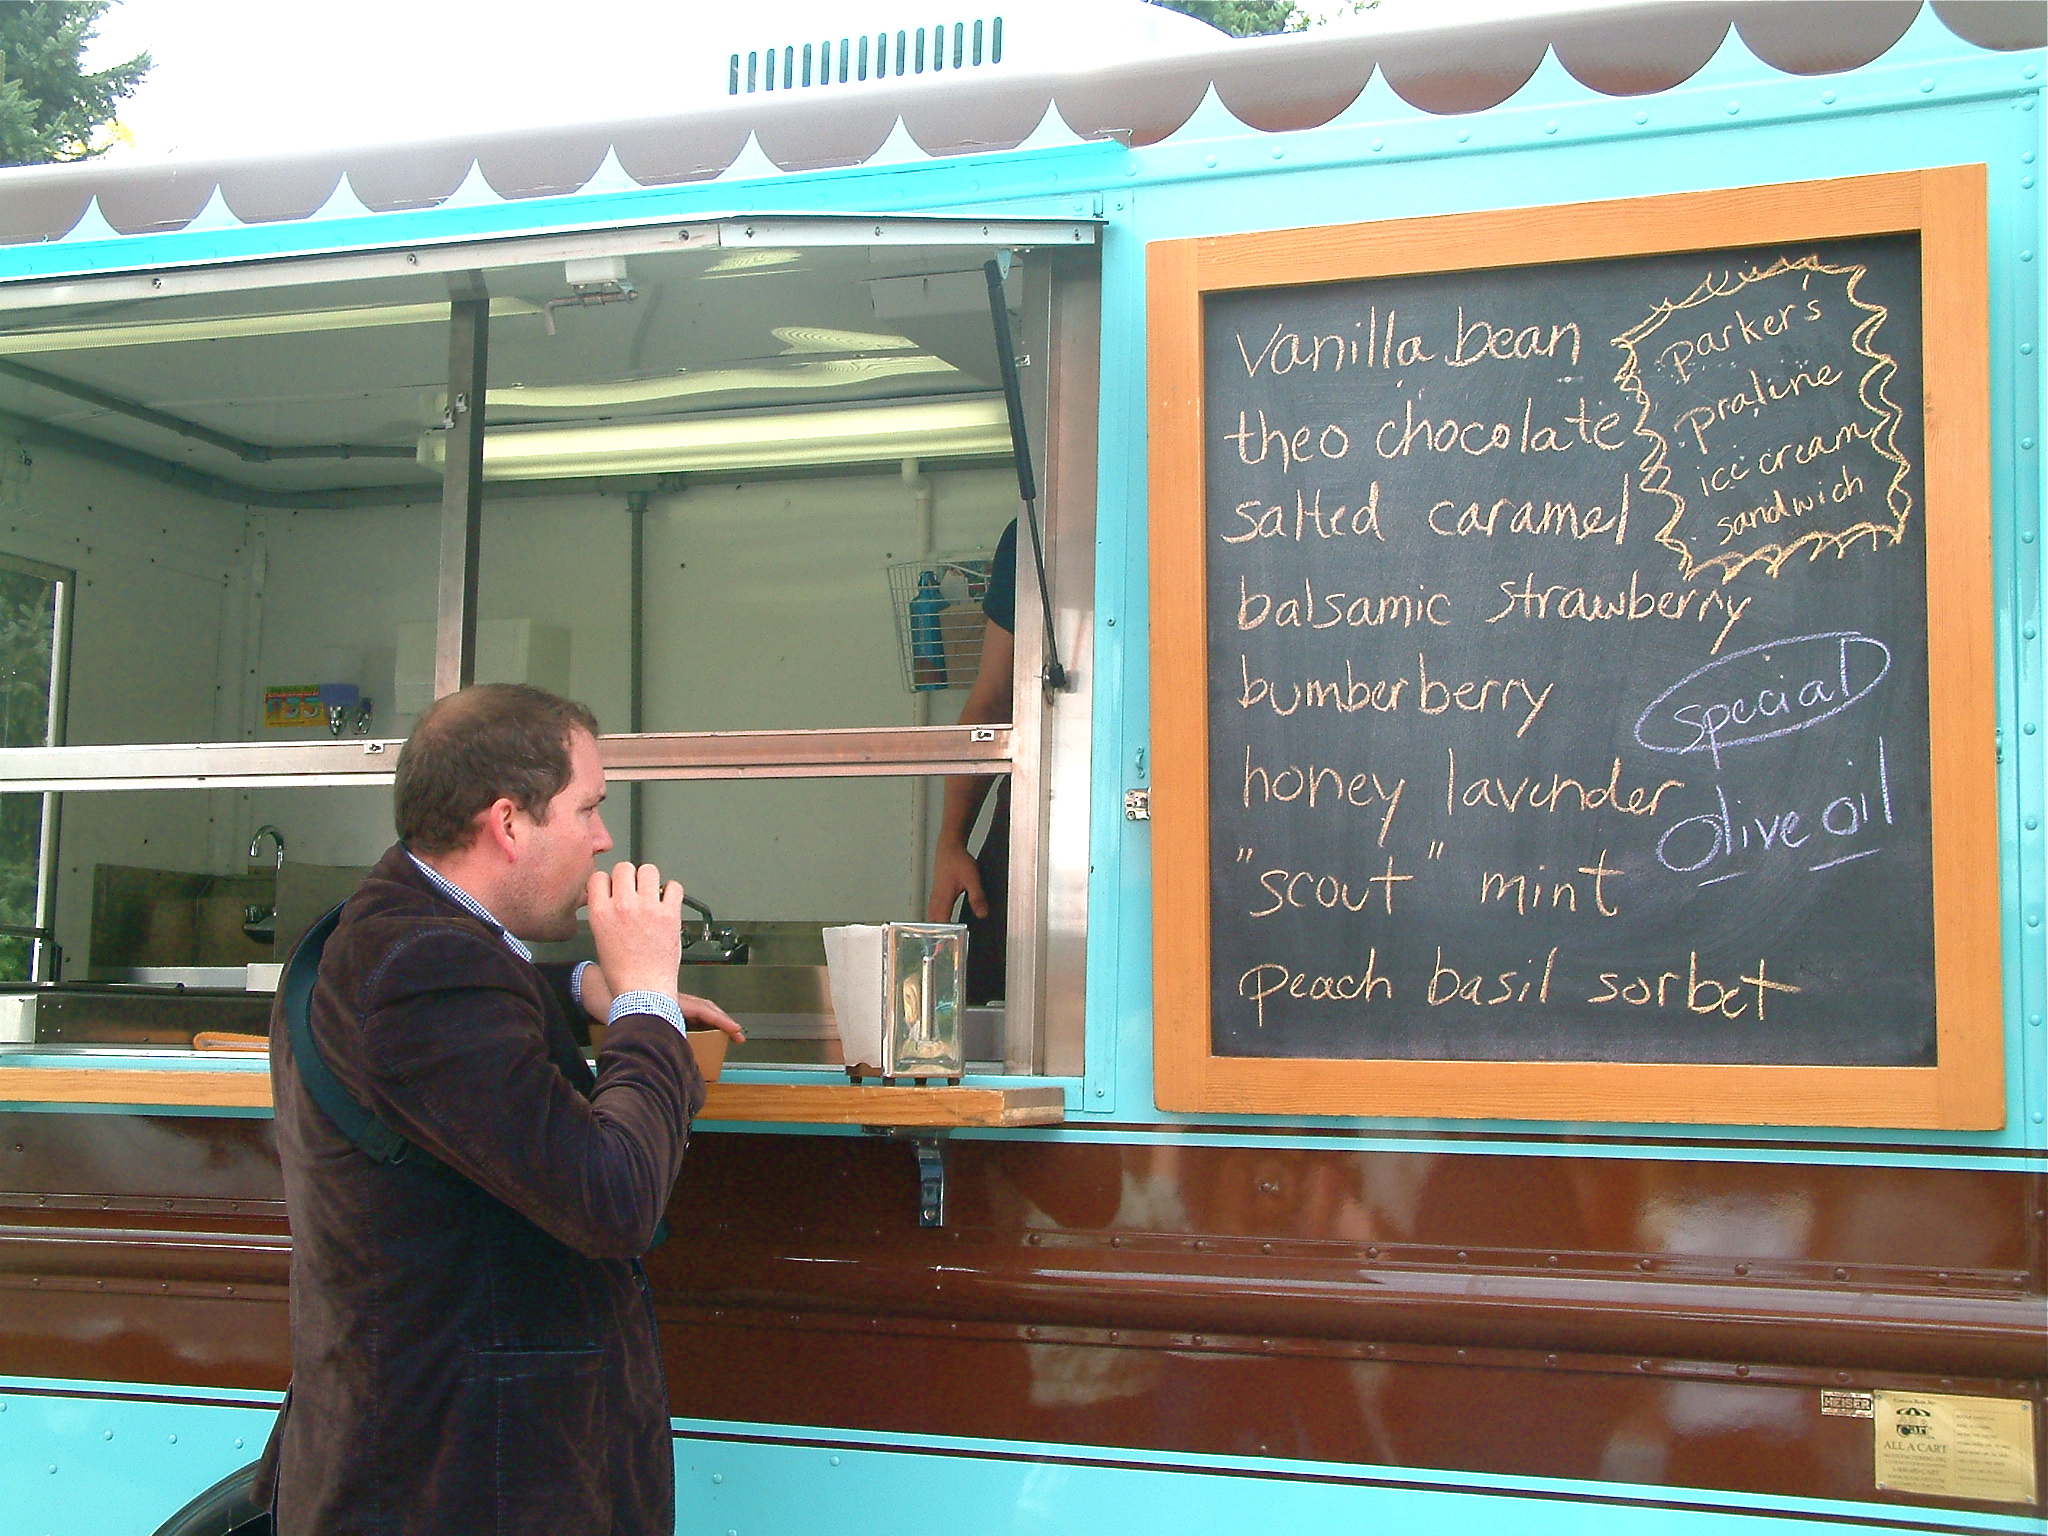 vanilla bean
theo chocolate
salted caramel
balsamic strawberry
bumberberry
honey lavender
"scout" mint
peach basil sorbet
parker's
praline
ice cream
sandwich
special
olive oil
HEISER
ALL A CART